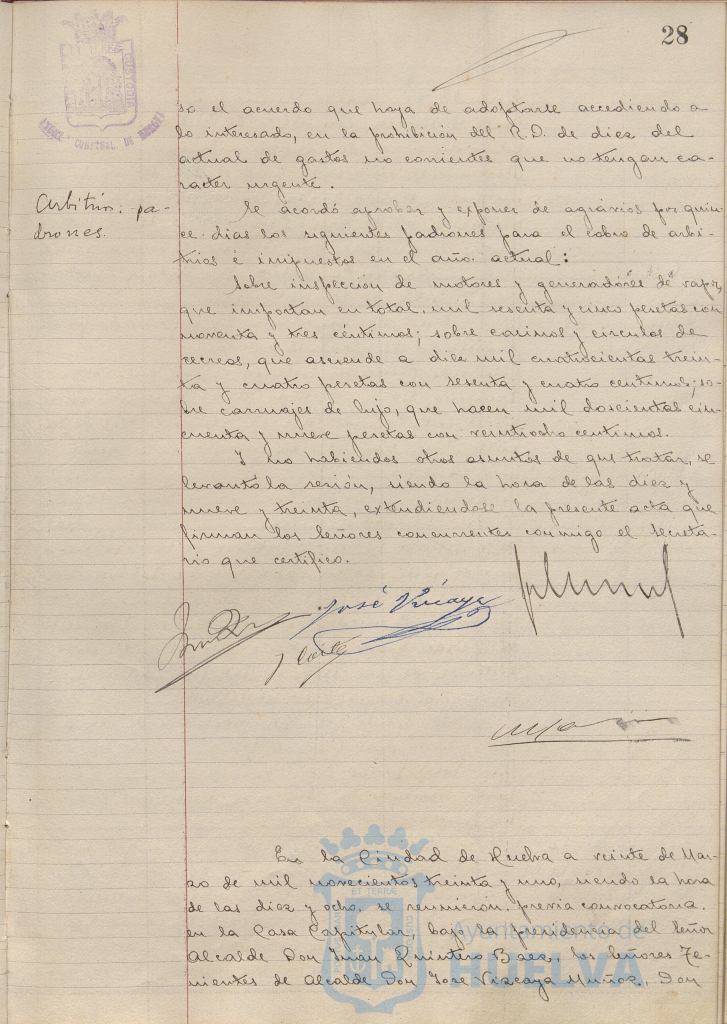 28
so el acuerdo que haya de adoptarse accediendo a
lo interesado, en la prohibición del R.D. de diez del
actual de gastos no corrientes que no tengan ca-
racter urgente.
Arbitrios: pa-
drones.
Se acordó aprobar y exponer de agravios por quin-
ce dias los siguientes padrones para el cobro de arbi-
trios é impuestos en el año actual:
Sobre inspección de motores y generadores de vapor,
que importan en total, mil sesenta y cinco pesetas con
noventa y tres céntimos; sobre casinos y circulos de
recreos, que asciende a diez mil cuatrocientas trein-
ta y cuatro pesetas con sesenta y cuatro centimos; so-
bre carruajes de lujo, que hacen mil doscientas cin-
cuenta y nueve pesetas con veintiocho centimos.
Y no habiendos otros asuntos de que tratar, se
levantó la sesión, siendo la hora de las diez y
nueve y treinta, extendiendose la presente acta que
firman los Señores concurrentes conmigo el Secreta-
rio que certifico.
José Vizcaya
En la Ciudad de Huelva a veinte de Mar-
zo de mil novecientos treinta y uno, siendo la hora
de las diez y ocho, se reunieron, previa convocatoria,
en la Casa Capitular, bajo la presidencia del Señor
Alcalde Don Juan Quintero Baez, los Señores Te-
nientes de Alcalde Don Jose Vizcaya Muñoz, Don
Ayuntamiento de
HUELVA